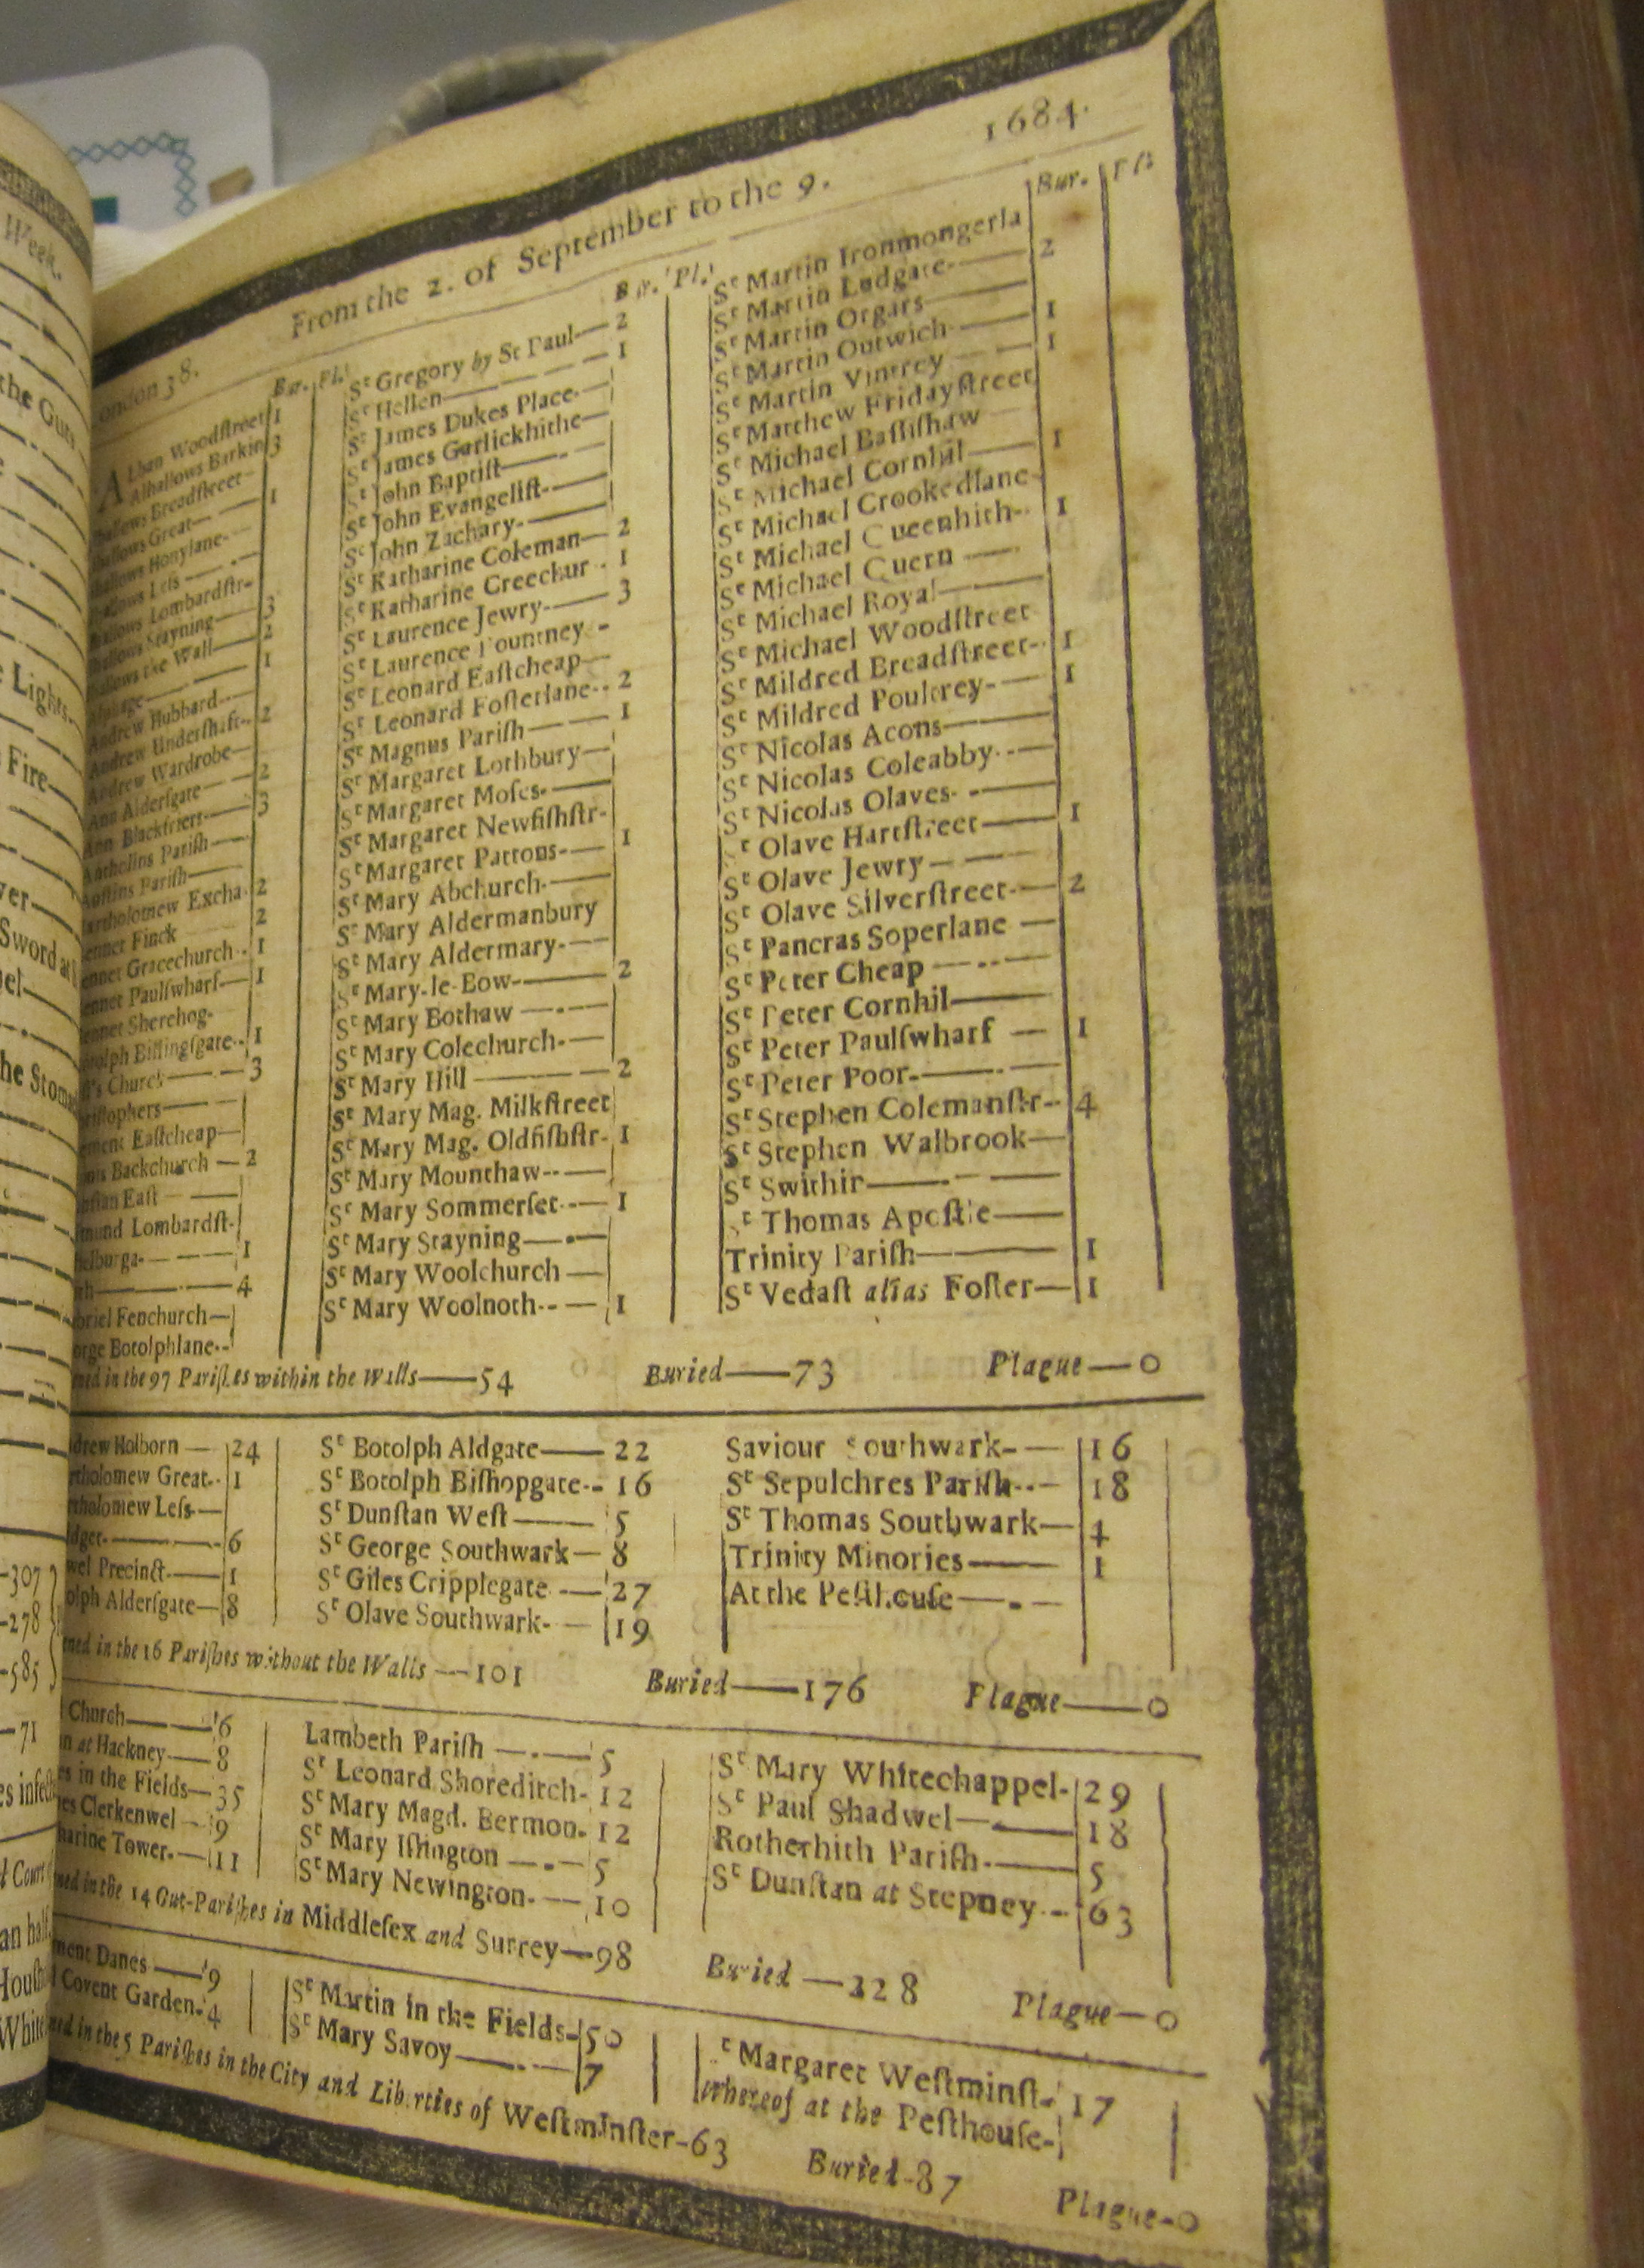 Week.
the Gu
Lights.
Fire
Sword
he Stoma
307
278
585
71
es infect
an half
Whit
ondon 38. From the 2. of September to the 9. 1684.
Bur. Pl.
Alban Woodſtreet 1
Alhallows Barkin 3
hallows Breadſtreet
hallows Great 1
hallows Honylane
allows Leſs
allows Lombardſtr
allows Stayning 3
allows the Wall 2
Alphage 1
Andrew Hubbard
Andrew Underſhaft 2
Andrew Wardrobe
Ann Alderſgate 2
Ann Blackfriers 3
Antholins Pariſh
Auſtins Pariſh
artholomew Excha. 2
ennet Finck 2
ennet Gracechurch 1
ennet Paulſwharf 1
ennet Sherehog
otolph Billingſgate 1
's Church 3
riſtophers
ement Eaſtcheap
nis Backchurch 2
nſtan Eaſt
mund Lombardſt
helburga 1
th 4
briel Fenchurch
orge Botolphlane
Bur. Pl.
St Gregory by St Paul 2
St Hellen 1
St James Dukes Place
St James Garlickhithe
St John Baptiſt
St John Evangeliſt
St John Zachary
St Katharine Coleman 2
St Katharine Creechur 1
St Laurence Jewry 3
St Laurence Pountney
St Leonard Eaſtcheap
St Leonard Foſterlane 2
St Magnus Pariſh 1
St Margaret Lothbury
St Margaret Moſes
St Margaret Newfiſhſtr
St Margaret Pattons 1
St Mary Abchurch
St Mary Aldermanbury
St Mary Aldermary
St Mary-le-Bow 2
St Mary Bothaw
St Mary Colechurch
St Mary Hill 2
St Mary Mag. Milkſtreet
St Mary Mag. Oldfiſhſtr 1
St Mary Mounthaw
St Mary Sommerſet 1
St Mary Stayning
St Mary Woolchurch
St Mary Woolnoth 1
Bur. Pl.
St Martin Ironmongerla
St Martin Ludgate 2
St Martin Orgars
St Martin Outwich 1
St Martin Vintrey 1
St Matthew Fridayſtreet
St Michael Baſſiſhaw
St Michael Cornhil 1
St Michael Crookedlane
St Michael Queenhith 1
St Michael Quern
St Michael Royal
St Michael Woodſtreet
St Mildred Breadſtreet 1
St Mildred Poultrey 1
St Nicolas Acons
St Nicolas Coleabby
St Nicolas Olaves
St Olave Hartſtreet 1
St Olave Jewry
St Olave Silverſtreet 2
St Pancras Soperlane
St Peter Cheap
St Peter Cornhil
St Peter Paulſwharf 1
St Peter Poor
St Stephen Colemanſtr 4
St Stephen Walbrook
St Swithin
St Thomas Apoſtle
Trinity Pariſh 1
St Vedaſt alias Foſter 1
ned in the 97 Pariſhes within the Walls 54 Buried 73 Plague 0
drew Holborn 24
rtholomew Great 1
rtholomew Leſs
idget 6
wel Precinct 1
olph Alderſgate 8
St Botolph Aldgate 22
St Botolph Biſhopgate 16
St Dunſtan Weſt 5
St George Southwark 8
St Giles Cripplegate 27
St Olave Southwark 19
Saviour Southwark 16
St Sepulchres Pariſh 18
St Thomas Southwark 4
Trinity Minories 1
At the Peſthouſe
ned in the 16 Pariſhes without the Walls 101 Buried 176 Plague 0
Church 6
n at Hackney 8
es in the Fields 35
es Clerkenwel 9
harine Tower 11
Lambeth Pariſh 5
St Leonard Shoreditch 12
St Mary Magd. Bermon. 12
St Mary Iſlington 5
St Mary Newington 10
St Mary Whitechappel 29
St Paul Shadwel 18
Rotherhith Pariſh 5
St Dunſtan at Stepney 63
ned in the 14 Out-Pariſhes in Middleſex and Surrey 98 Buried 228 Plague 0
ment Danes 9
l Covent Garden 4
St Martin in the Fields 50
St Mary Savoy 7
St Margaret Weſtminſt 17
whereof at the Peſthouſe
ned in the 5 Pariſhes in the City and Liberties of WeſtmInſter 63 Buried 87 Plague 0